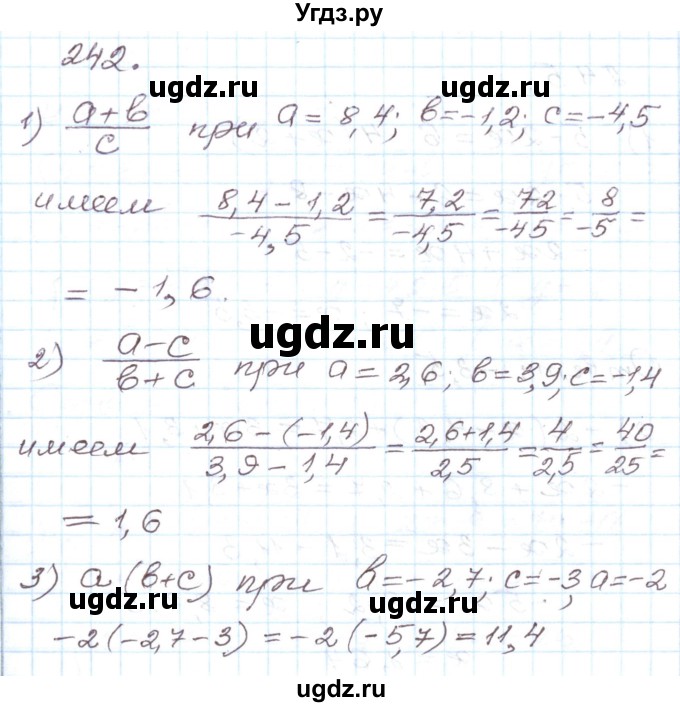 Угдз.ру
242.
1) (a+в)/c при a = 8,4; в=-1,2; c=-4,5
имеем (8,4-1,2)/(-4,5) = 7,2/(-4,5) = 72/(-45) = 8/(-5) =
= -1,6.
2) (a-c)/(в+c) при a = 2,6; в=3,9; c=-1,4
имеем (2,6-(-1,4))/(3,9-1,4) = (2,6+1,4)/2,5 = 4/2,5 = 40/25 =
= 1,6
3) a(в+c) при в=-2,7; c=-3; a=-2
-2(-2,7-3) = -2(-5,7) = 11,4
ugdz.ru
ugdz.ru
ugdz.ru
ugdz.ru
ugdz.ru
ugdz.ru